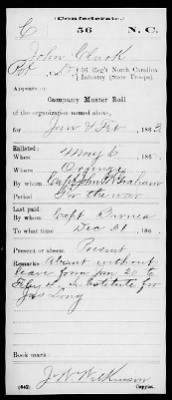 Confederate.
C 56 N. C.
John Clark
Pvt, Co. , 56 Reg't North Carolina
Infantry (State Troops).
Appears on
Company Muster Roll
of the organization named above,
for Jan & Feb, 1863.
Enlisted:
When May 6, 186
Where Orange
By whom Capt John W Graham
Period For the war
Last paid:
By whom Capt Barnes
To what time Dec 31, 186
Present or absent Present
Remarks: Absent without
leave from Jan 20 to
Feby Substitute for
Jas Long
Book mark:
J W Wilkinson
(642) Copyist.